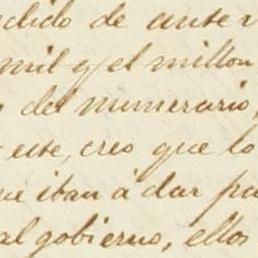 dido de ante
mil y el millon
del numerario,
este, creo que lo
iban á dar pa
al gobierno, ellos